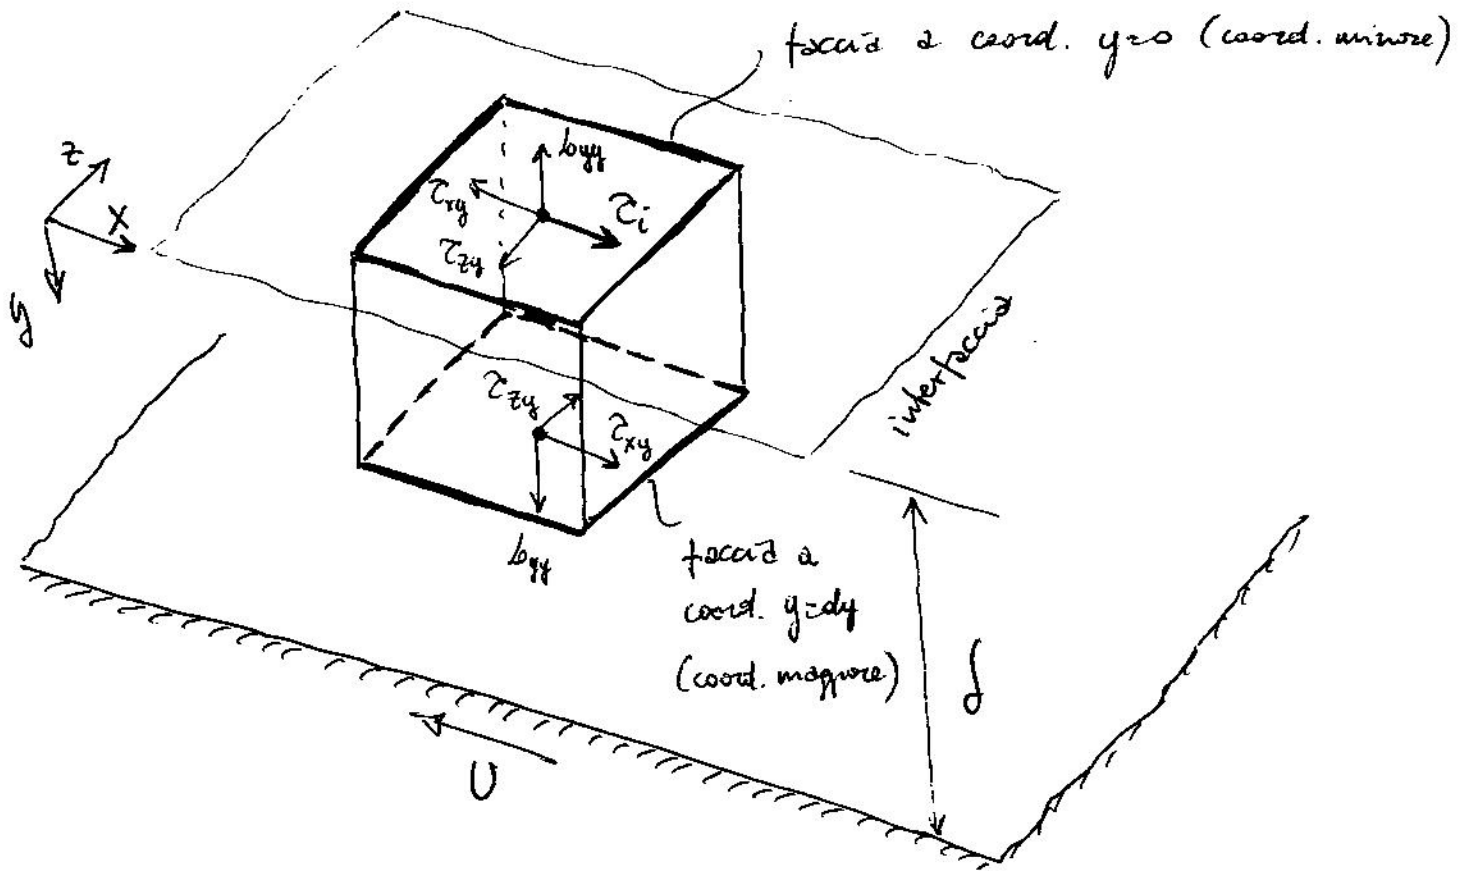 faccia a coord. y=0 (coord. minore)
z
x
y
σyy
τxy
τi
τzy
interfaccia
τzy
τxy
σyy
faccia a
coord. y=dy
(coord. maggiore)
δ
U